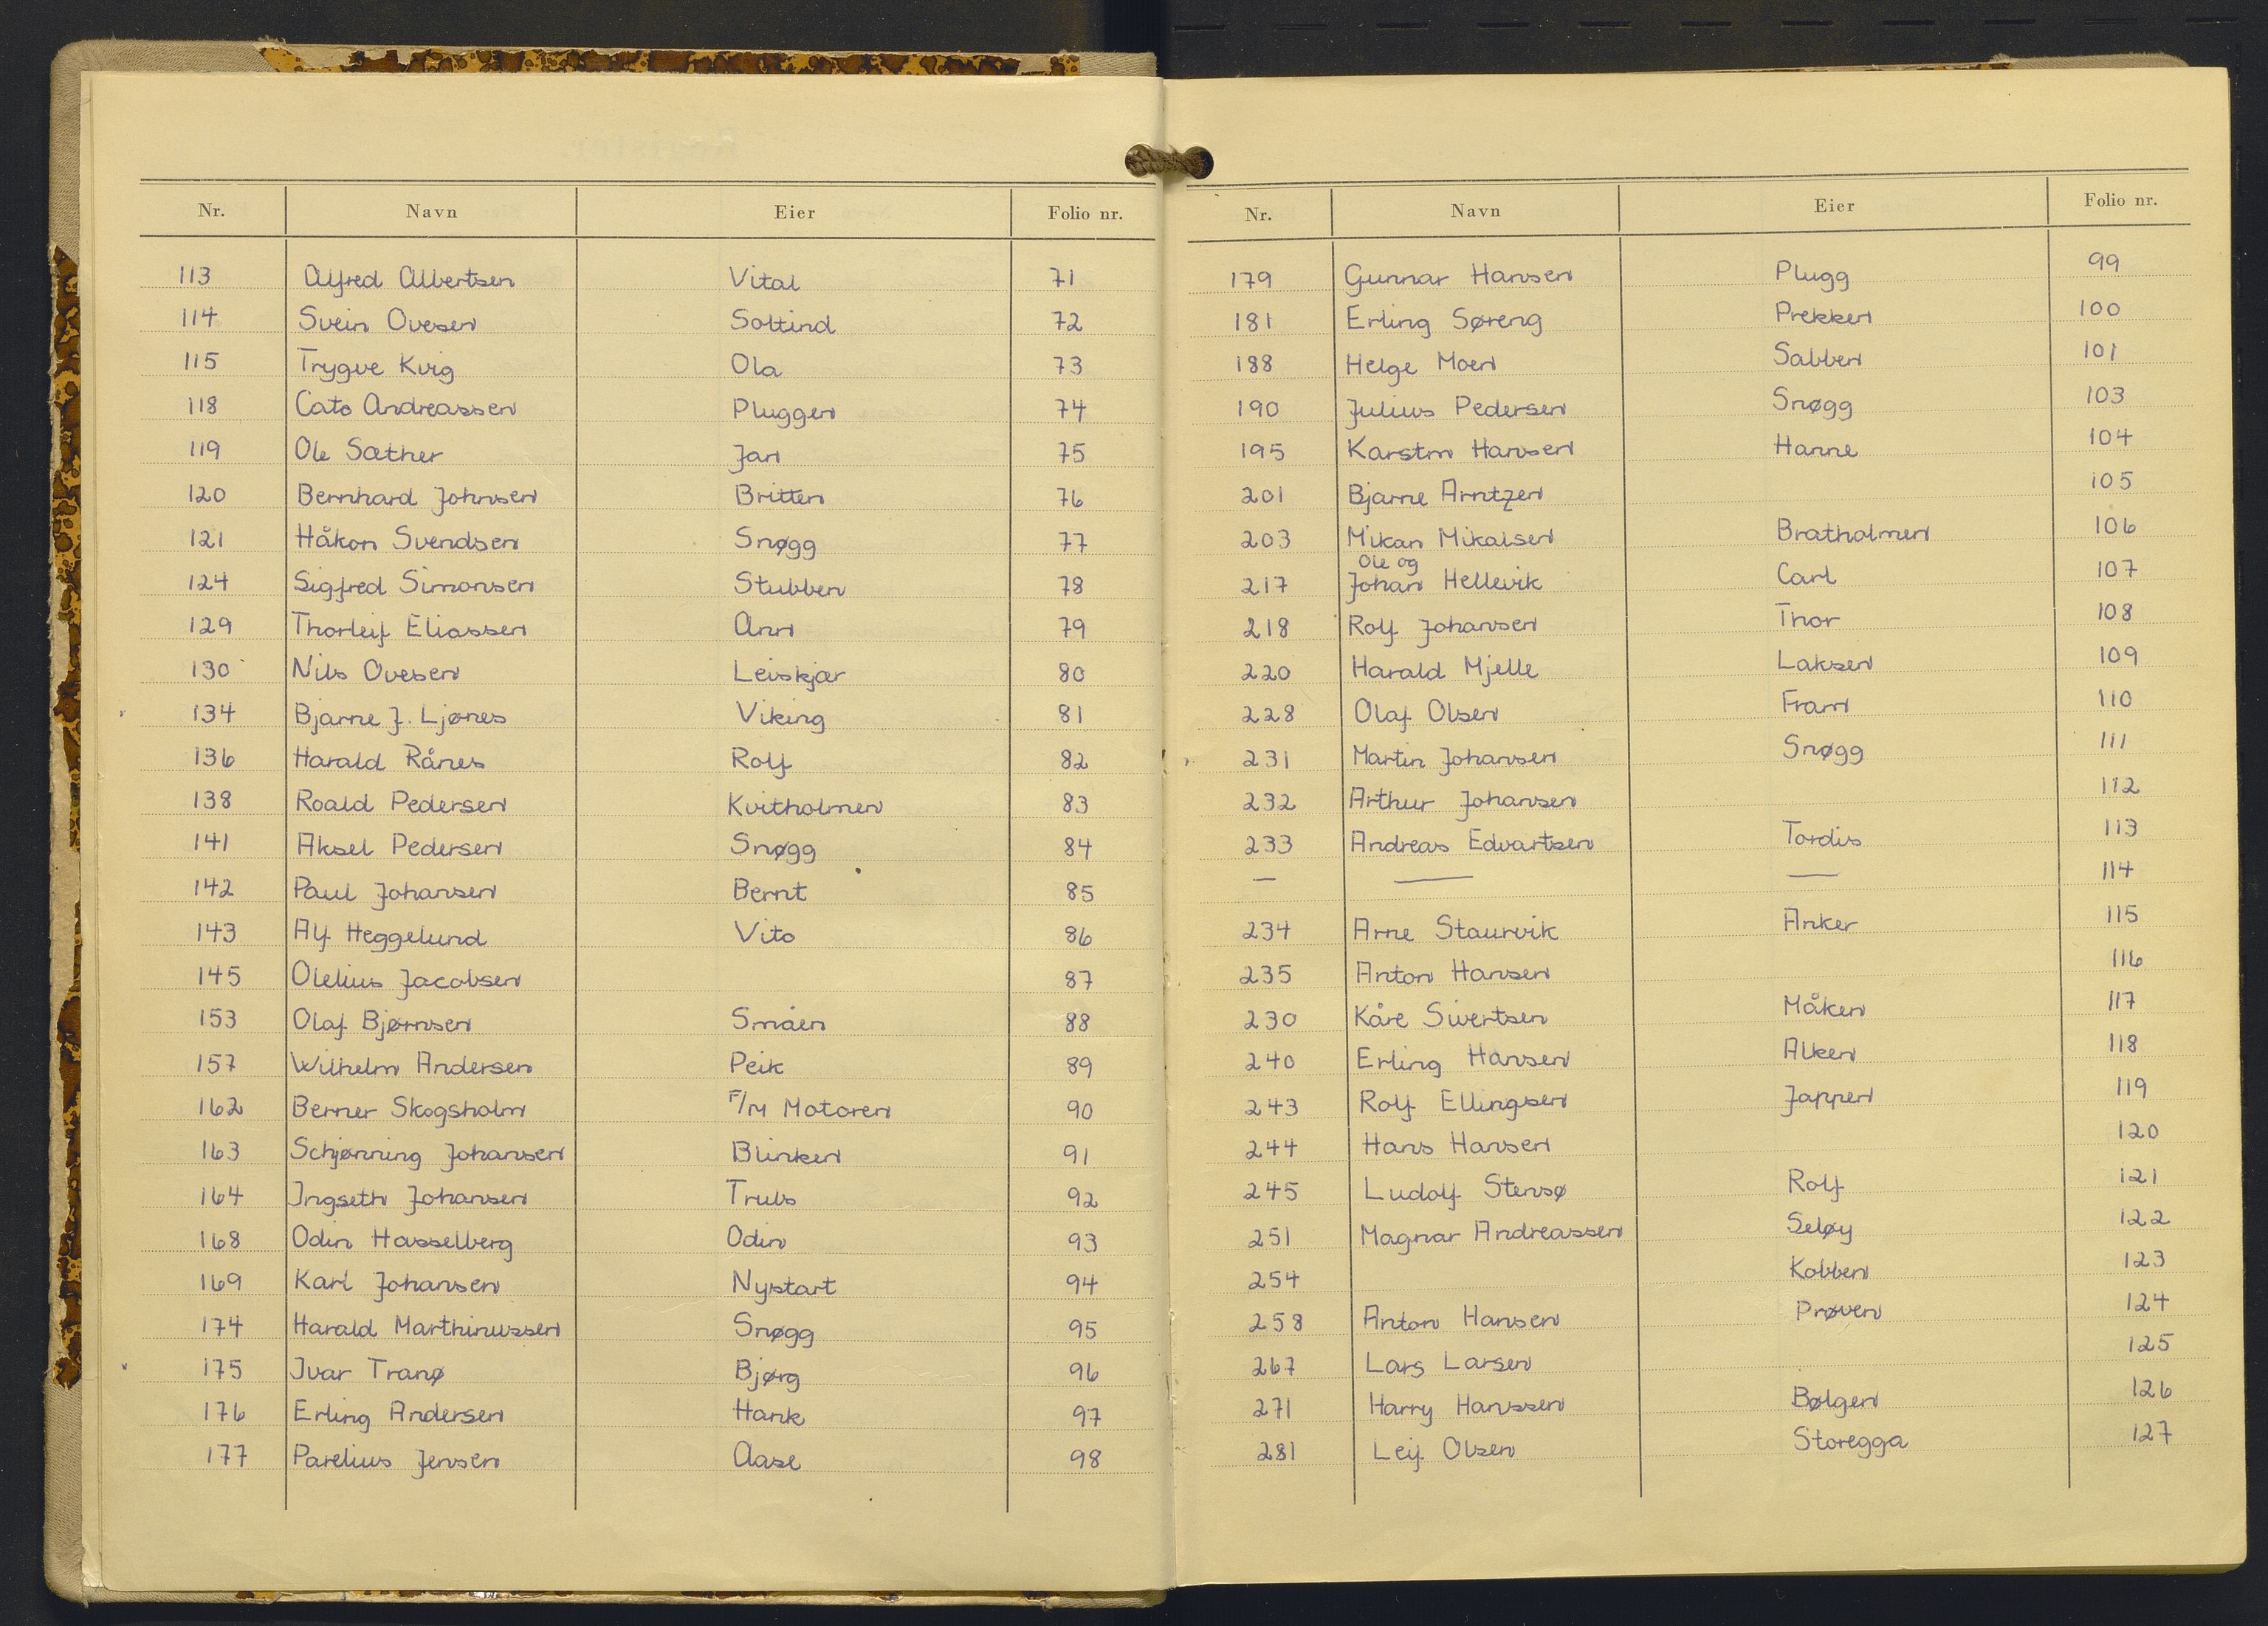 Nr. Navn Eier Folio nr.
113 Alfred Albertsen Vital 71
114 Svein Ovesen Soltind 72
115 Trygve Kvig Ola 73
118 Cato Andreassen Pluggen 74
119 Ole Sæther Jan 75
120 Bernhard Johnsen Britten 76
121 Håkon Svendsen Snøgg 77
124 Sigfred Simonsen Stubben 78
129 Thorleif Eliassen Ann 79
130 Nils Ovesen Leiskjær 80
134 Bjarne J. Ljønes Viking 81
136 Harald Rånes Rolf 82
138 Roald Pedersen Kvitholmen 83
141 Aksel Pedersen Snøgg 84
142 Paul Johansen Bernt 85
143 Alf Heggelund Vito 86
145 Olelius Jacobsen 87
153 Olaf Bjørnsen Småen 88
157 Wilhelm Andersen Peik 89
162 Berner Skogsholm F/M Motoren 90
163 Schjønning Johansen Blinken 91
164 Ingseth Johansen Truls 92
168 Odin Hasselberg Odin 93
169 Karl Johansen Nystart 94
174 Harald Marthinussen Snøgg 95
175 Ivar Tranø Bjørg 96
176 Erling Andersen Hank 97
177 Parelius Jensen Aase 98
Nr. Navn Eier Folio nr.
179 Gunnar Hansen Plugg 99
181 Erling Søreng Prekken 100
188 Helge Moen Sabben 101
190 Julius Pedersen Snøgg 103
195 Karstin Hansen Hanne 104
201 Bjarne Arntzen 105
203 Mikan Mikalsen Bratholmen 106
Ole og
217 Johan Hellevik Carl 107
218 Rolf Johansen Thor 108
220 Harald Mjelle Laksen 109
228 Olaf Olsen Fram 110
231 Martin Johansen Snøgg 111
232 Arthur Johansen 112
233 Andreas Edvartsen Tordis 113
— — — 114
234 Arne Staurvik Anker 115
235 Anton Hansen 116
230 Kåre Sivertsen Måken 117
240 Erling Hansen Alken 118
243 Rolf Ellingsen Jappen 119
244 Hans Hansen 120
245 Ludolf Stensø Rolf 121
251 Magnar Andreassen Seløy 122
254 Kobben 123
258 Anton Hansen Prøven 124
267 Lars Larsen 125
271 Harry Hanssen Bølgen 126
281 Leif Olsen Storegga 127